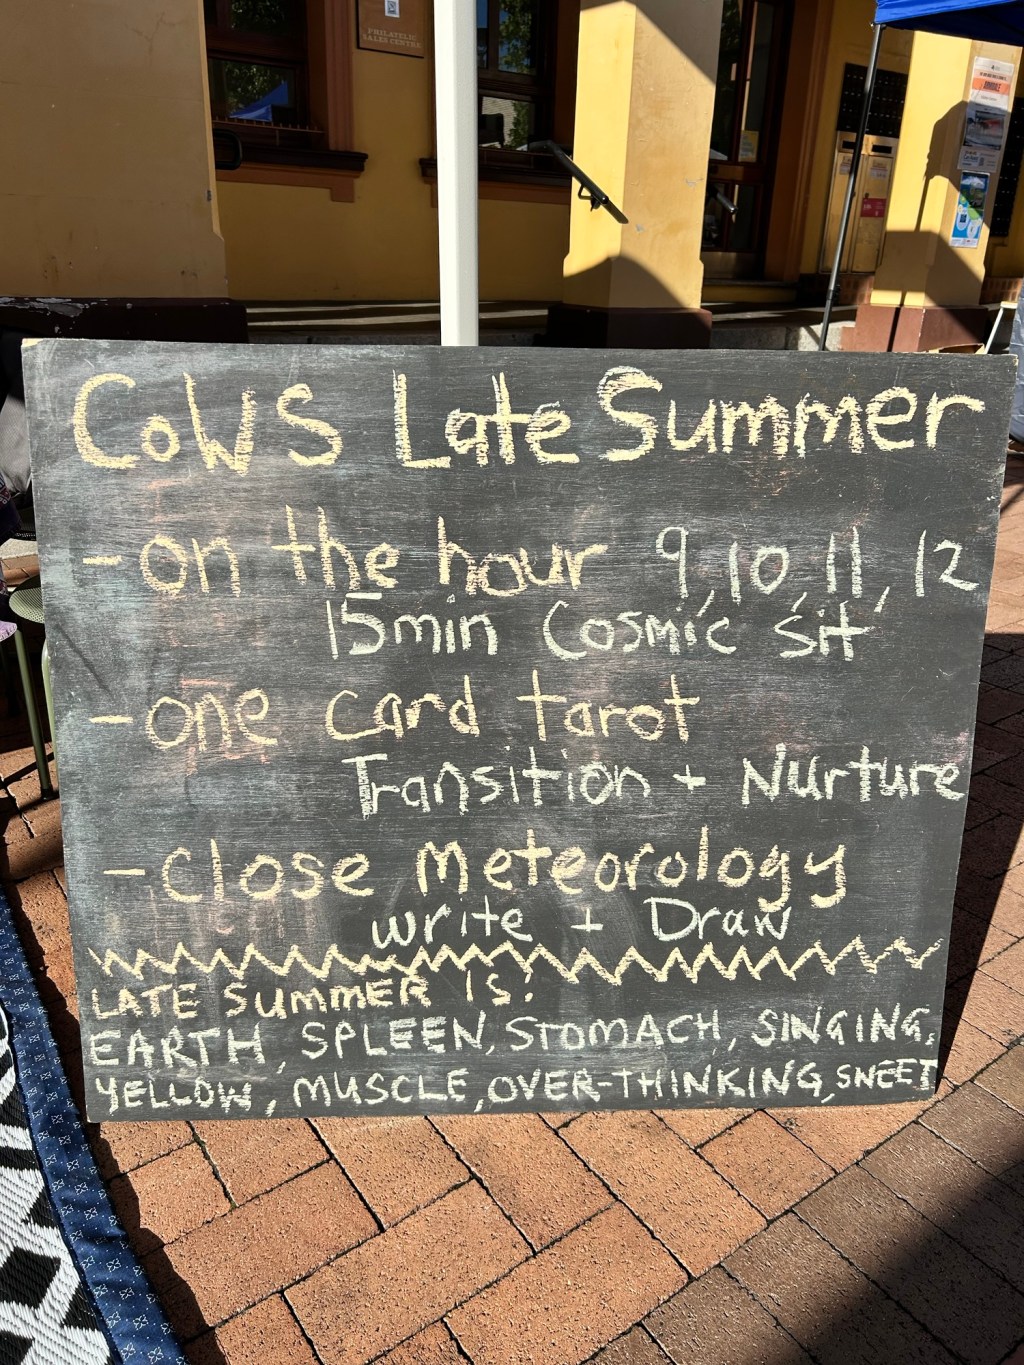 PHILATELIC
SALES CENTRE
CoWS Late Summer
- on the hour 9, 10, 11, 12
15min Cosmic Sit
- one card tarot
Transition + Nurture
- Close Meteorology
write + Draw
LATE SUMMER IS:
EARTH, SPLEEN, STOMACH, SINGING,
YELLOW, MUSCLE, OVER-THINKING, SWEET